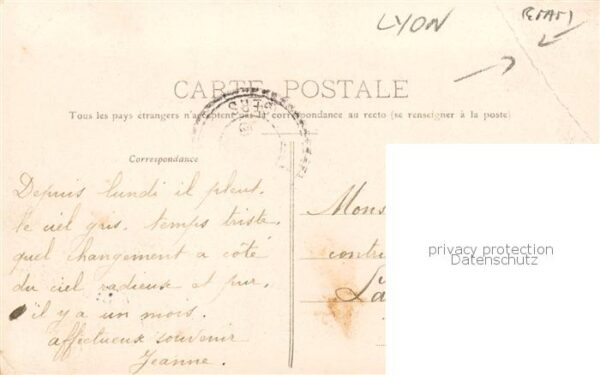 LYON
CARTE POSTALE
Tous les pays étrangers n'acceptent pas la correspondance au recto (se renseigner à la poste)
Correspondance
Depuis lundi il pleut.
le ciel gris. temps triste.
quel changement a côté
du ciel radieuse et pur.
il y a un mois.
affectueux souvenir
Jeanne.
Mons
contri
La
privacy protection
Datenschutz